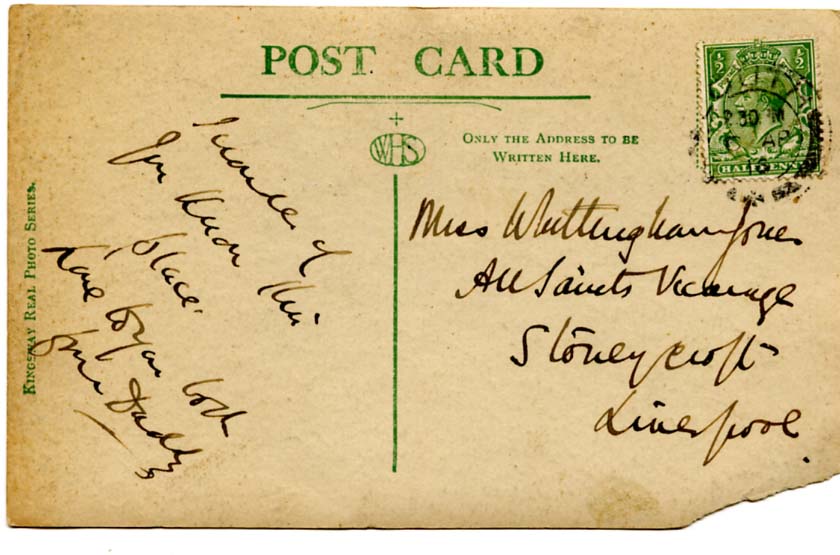 POST CARD
WHS
ONLY THE ADDRESS TO BE
WRITTEN HERE.
½ ½
HALFPENNY
30 M
AP
16
KINGSWAY REAL PHOTO SERIES.
I wonder if
you know this
place.
Love to you both
from Daddy
Miss Whittingham Jones
All Saints Vicarage
Stoneycroft
Liverpool